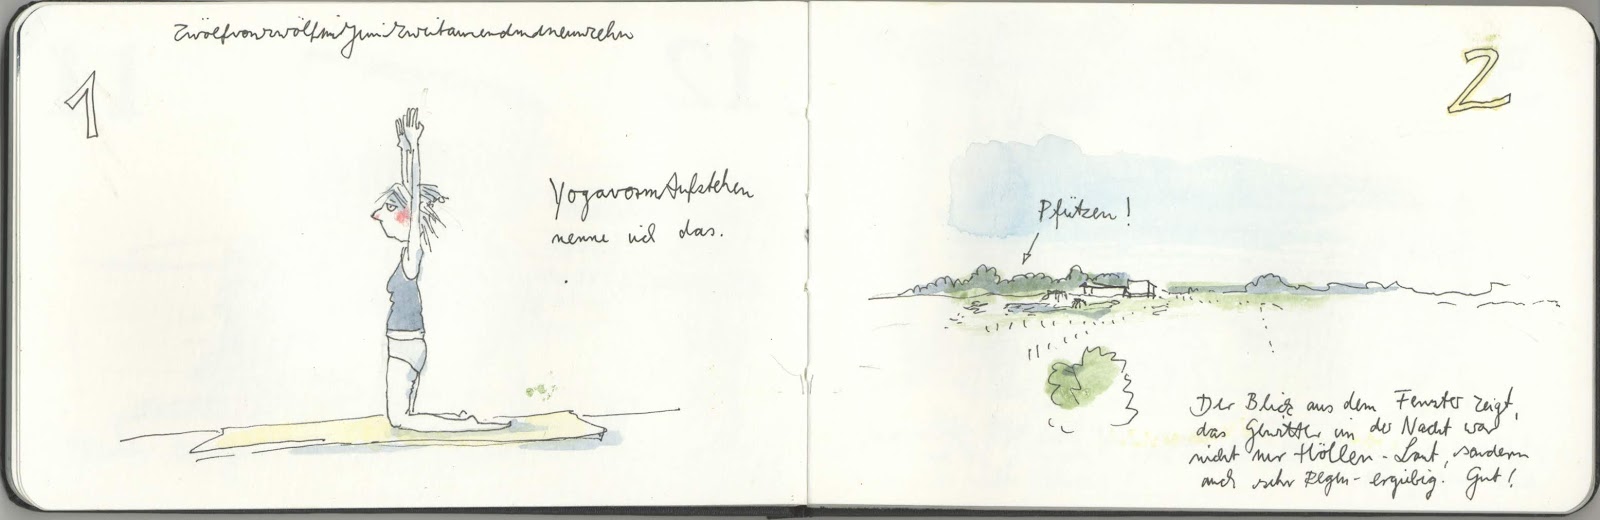 zwölfvonzwölfimJunizweitausendundneunzehn
1
Yogavorm Aufstehen
nenne ich das.
2
Pfützen!
Der Blick aus dem Fenster zeigt,
das Gewitter in der Nacht war
nicht nur Höllen-Laut, sondern
auch sehr Regen-ergiebig. Gut!